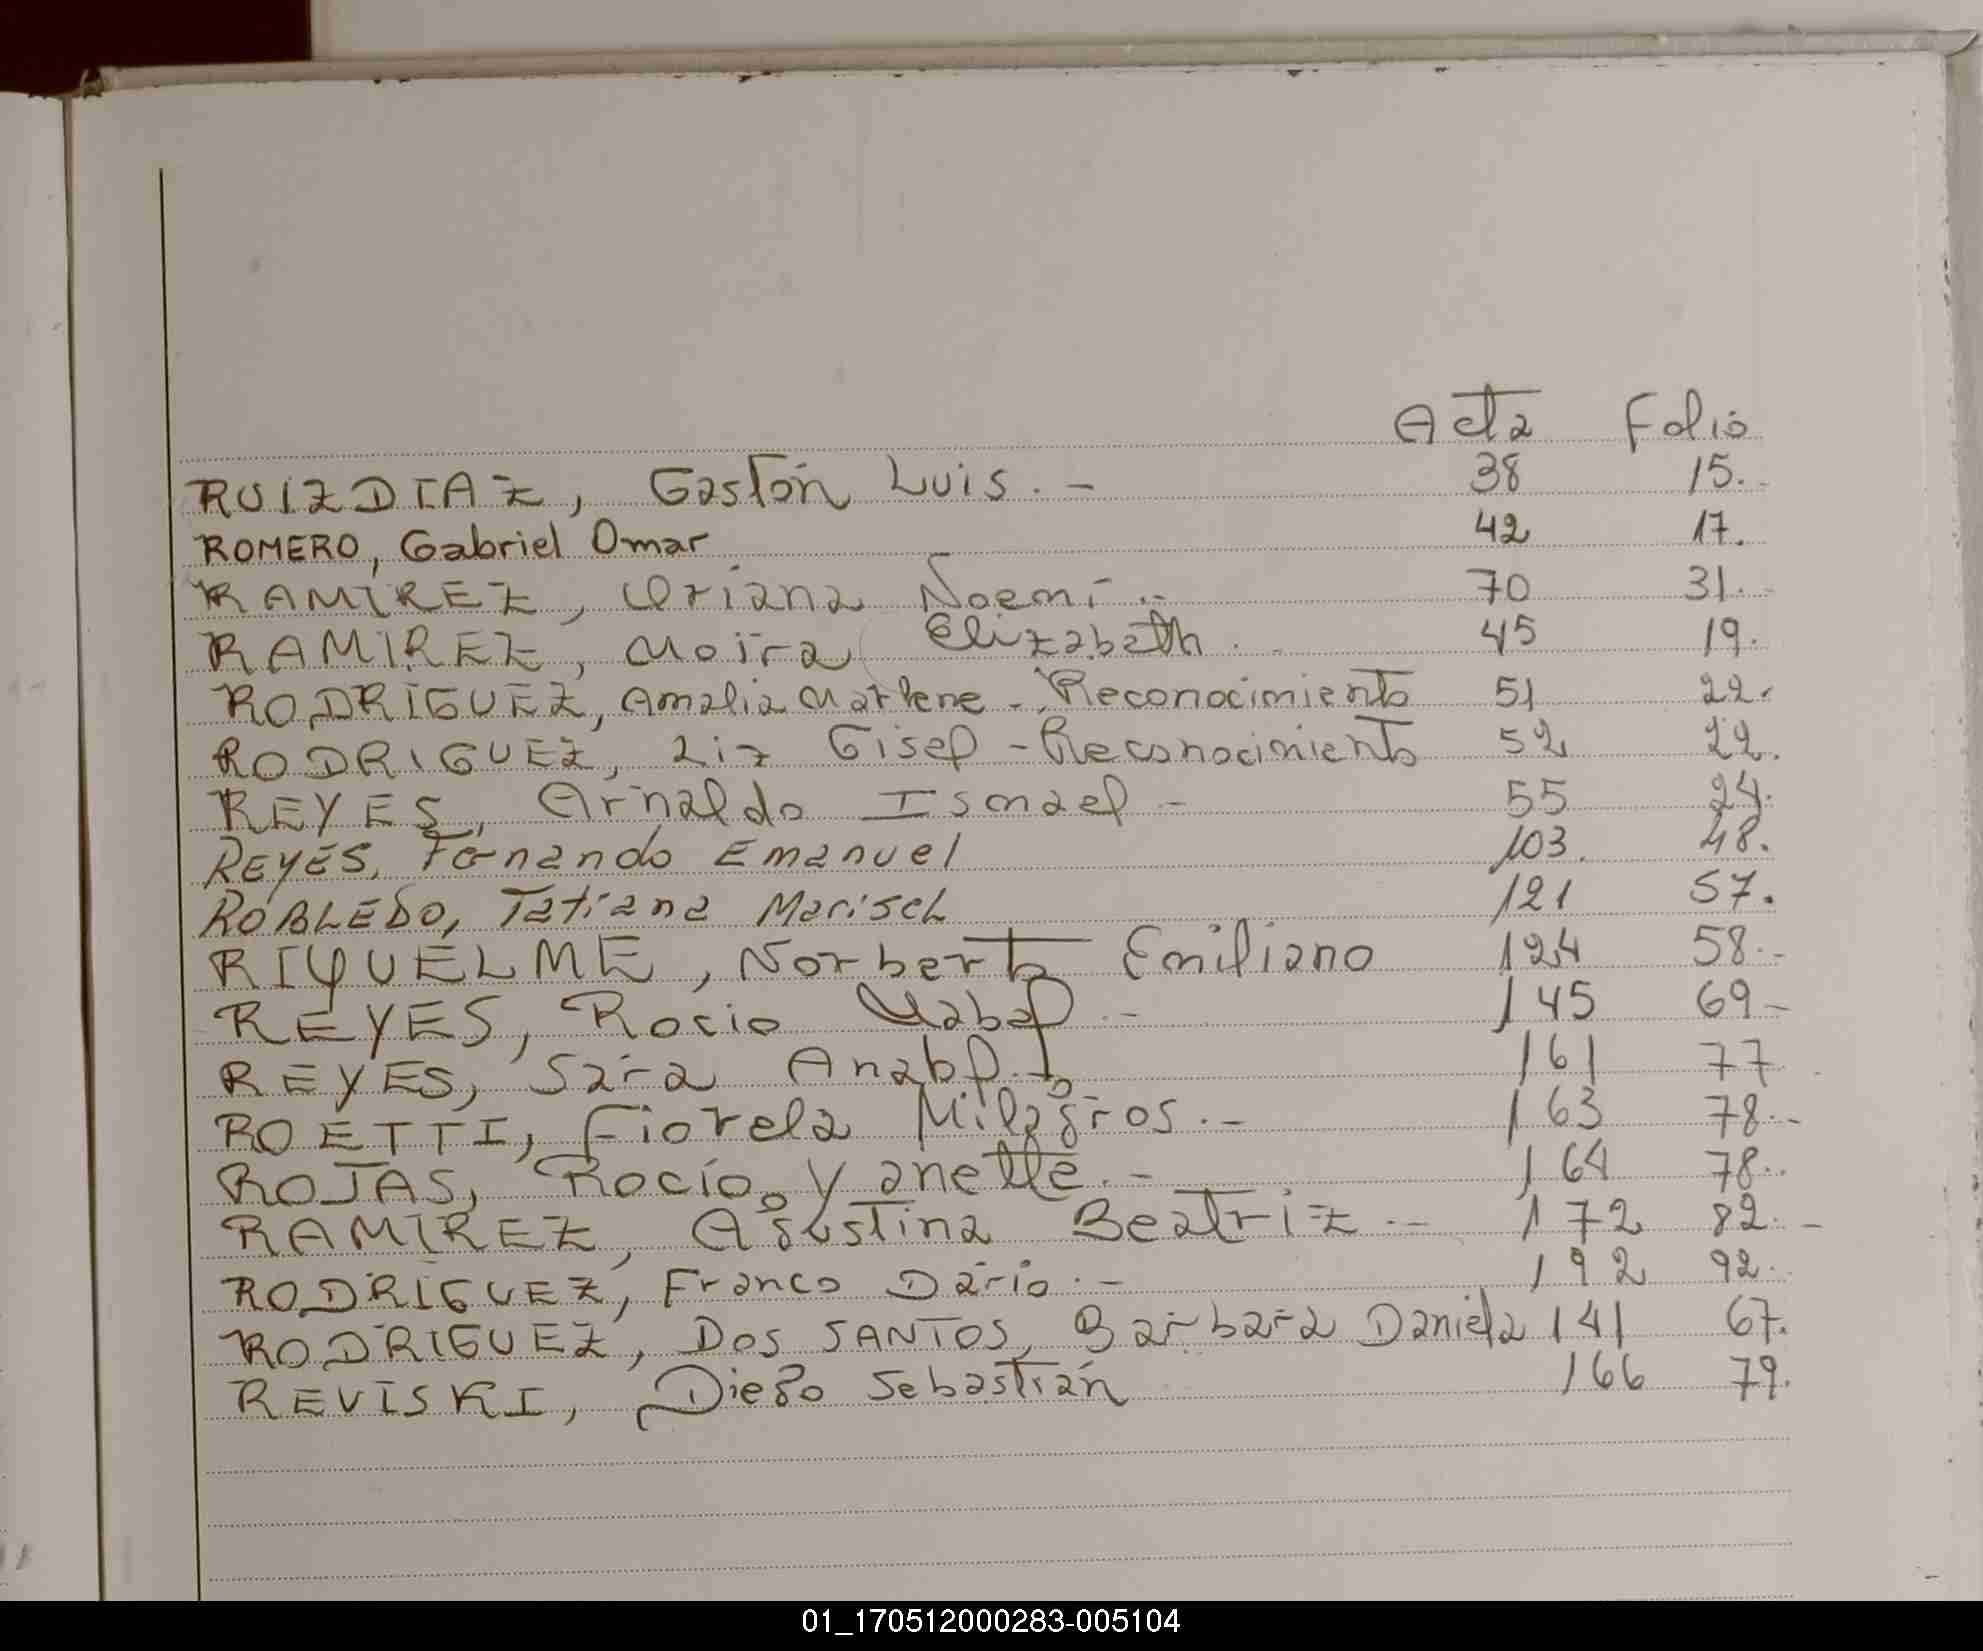 Acta Folio
RUIZDIAZ, Gastón Luis.- 38 15.-
ROMERO, Gabriel Omar 42 17.
RAMIREZ, Oriana Noemí.- 70 31.-
RAMIREZ, Moira Elizabeth.- 45 19.
RODRIGUEZ, Amalia Marlene - Reconocimiento 51 22.
RODRIGUEZ, Liz Gisel - Reconocimiento 52 22.
REYES, Arnaldo Ismael - 55 24.
REYES, Fernando Emanuel 103. 48.
ROBLEDO, Tatiana Marisel 121 57.
RIQUELME, Norberto Emiliano 124 58.-
REYES, Rocio Mabel.- 145 69-
REYES, Sara Anabel.- 161 77
ROETTI, Fiorela Milagros.- 163 78.-
ROJAS, Rocío Yanette.- 164 78.
RAMIREZ, Agustina Beatriz.- 172 82.-
RODRIGUEZ, Franco Dario.- 192 92.
RODRIGUEZ, DOS SANTOS, Barbara Daniela 141 67.
REVISKI, Diego Sebastián 166 79.
01_170512000283-005104